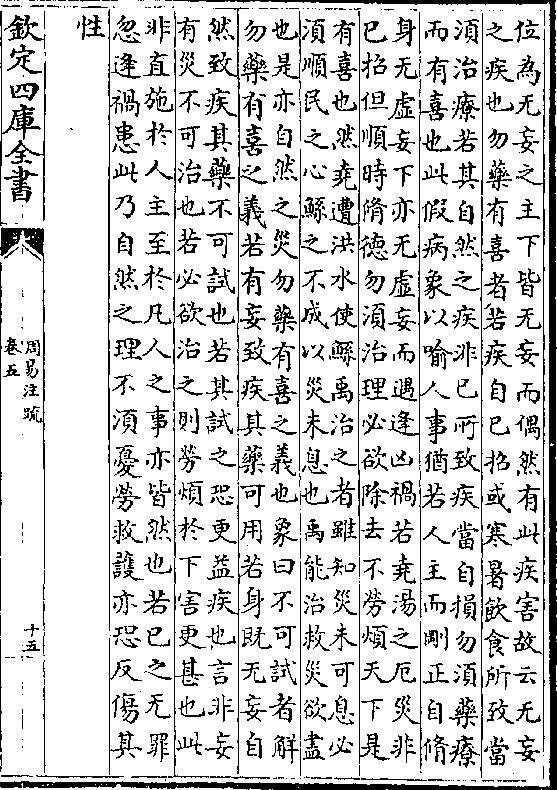 位為无妄之主下皆无妄而偶然有此疾害故云无妄
之疾也勿藥有喜者若疾自已招或寒暑飲食所致當
須治療若其自然之疾非已所致疾當自損勿須藥療
而有喜也此假病象以喻人事猶若人主而剛正自脩
身无虛妄下亦无虛妄而遇逢凶禍若堯湯之厄災非
已招但順時脩德勿須治理必欲除去不勞煩天下是
有喜也然堯遭洪水使鯀禹治之者雖知災未可息必
須順民之心鯀之不成以災未息也禹能治救災欲盡
也是亦自然之災勿藥有喜之義也象曰不可試者解
勿藥有喜之義若有妄致疾其藥可用若身既无妄自
然致疾其藥不可試也若其試之恐更益疾也言非妄
有災不可治也若必欲治之則勞煩於下害更甚也此
非直施於人主至於凡人之事亦皆然也若已之无罪
忽逢禍患此乃自然之理不須憂勞救護亦恐反傷其
性
欽定四庫全書
周易注疏
卷五
十五